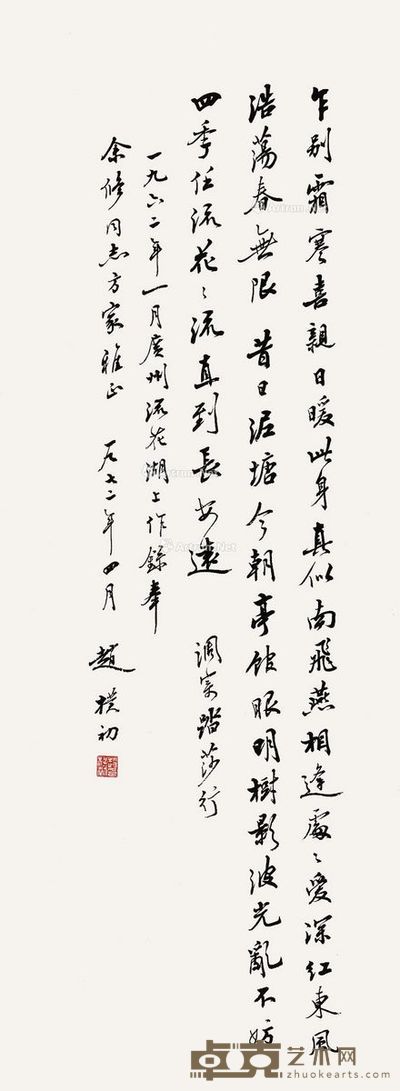 乍别霜寒喜親日暖此身真似南飛燕相逢處〻愛深紅東風
浩蕩春無限昔日泥塘今朝亭館眼明樹影波光亂不妨
四季任流花〻流直到長安遠 調寄踏莎行
一九六二年一月廣州流花湖上作錄奉
余修同志方家雅正 一九七二年四月 趙樸初
卓克艺术网
zhuokearts.com